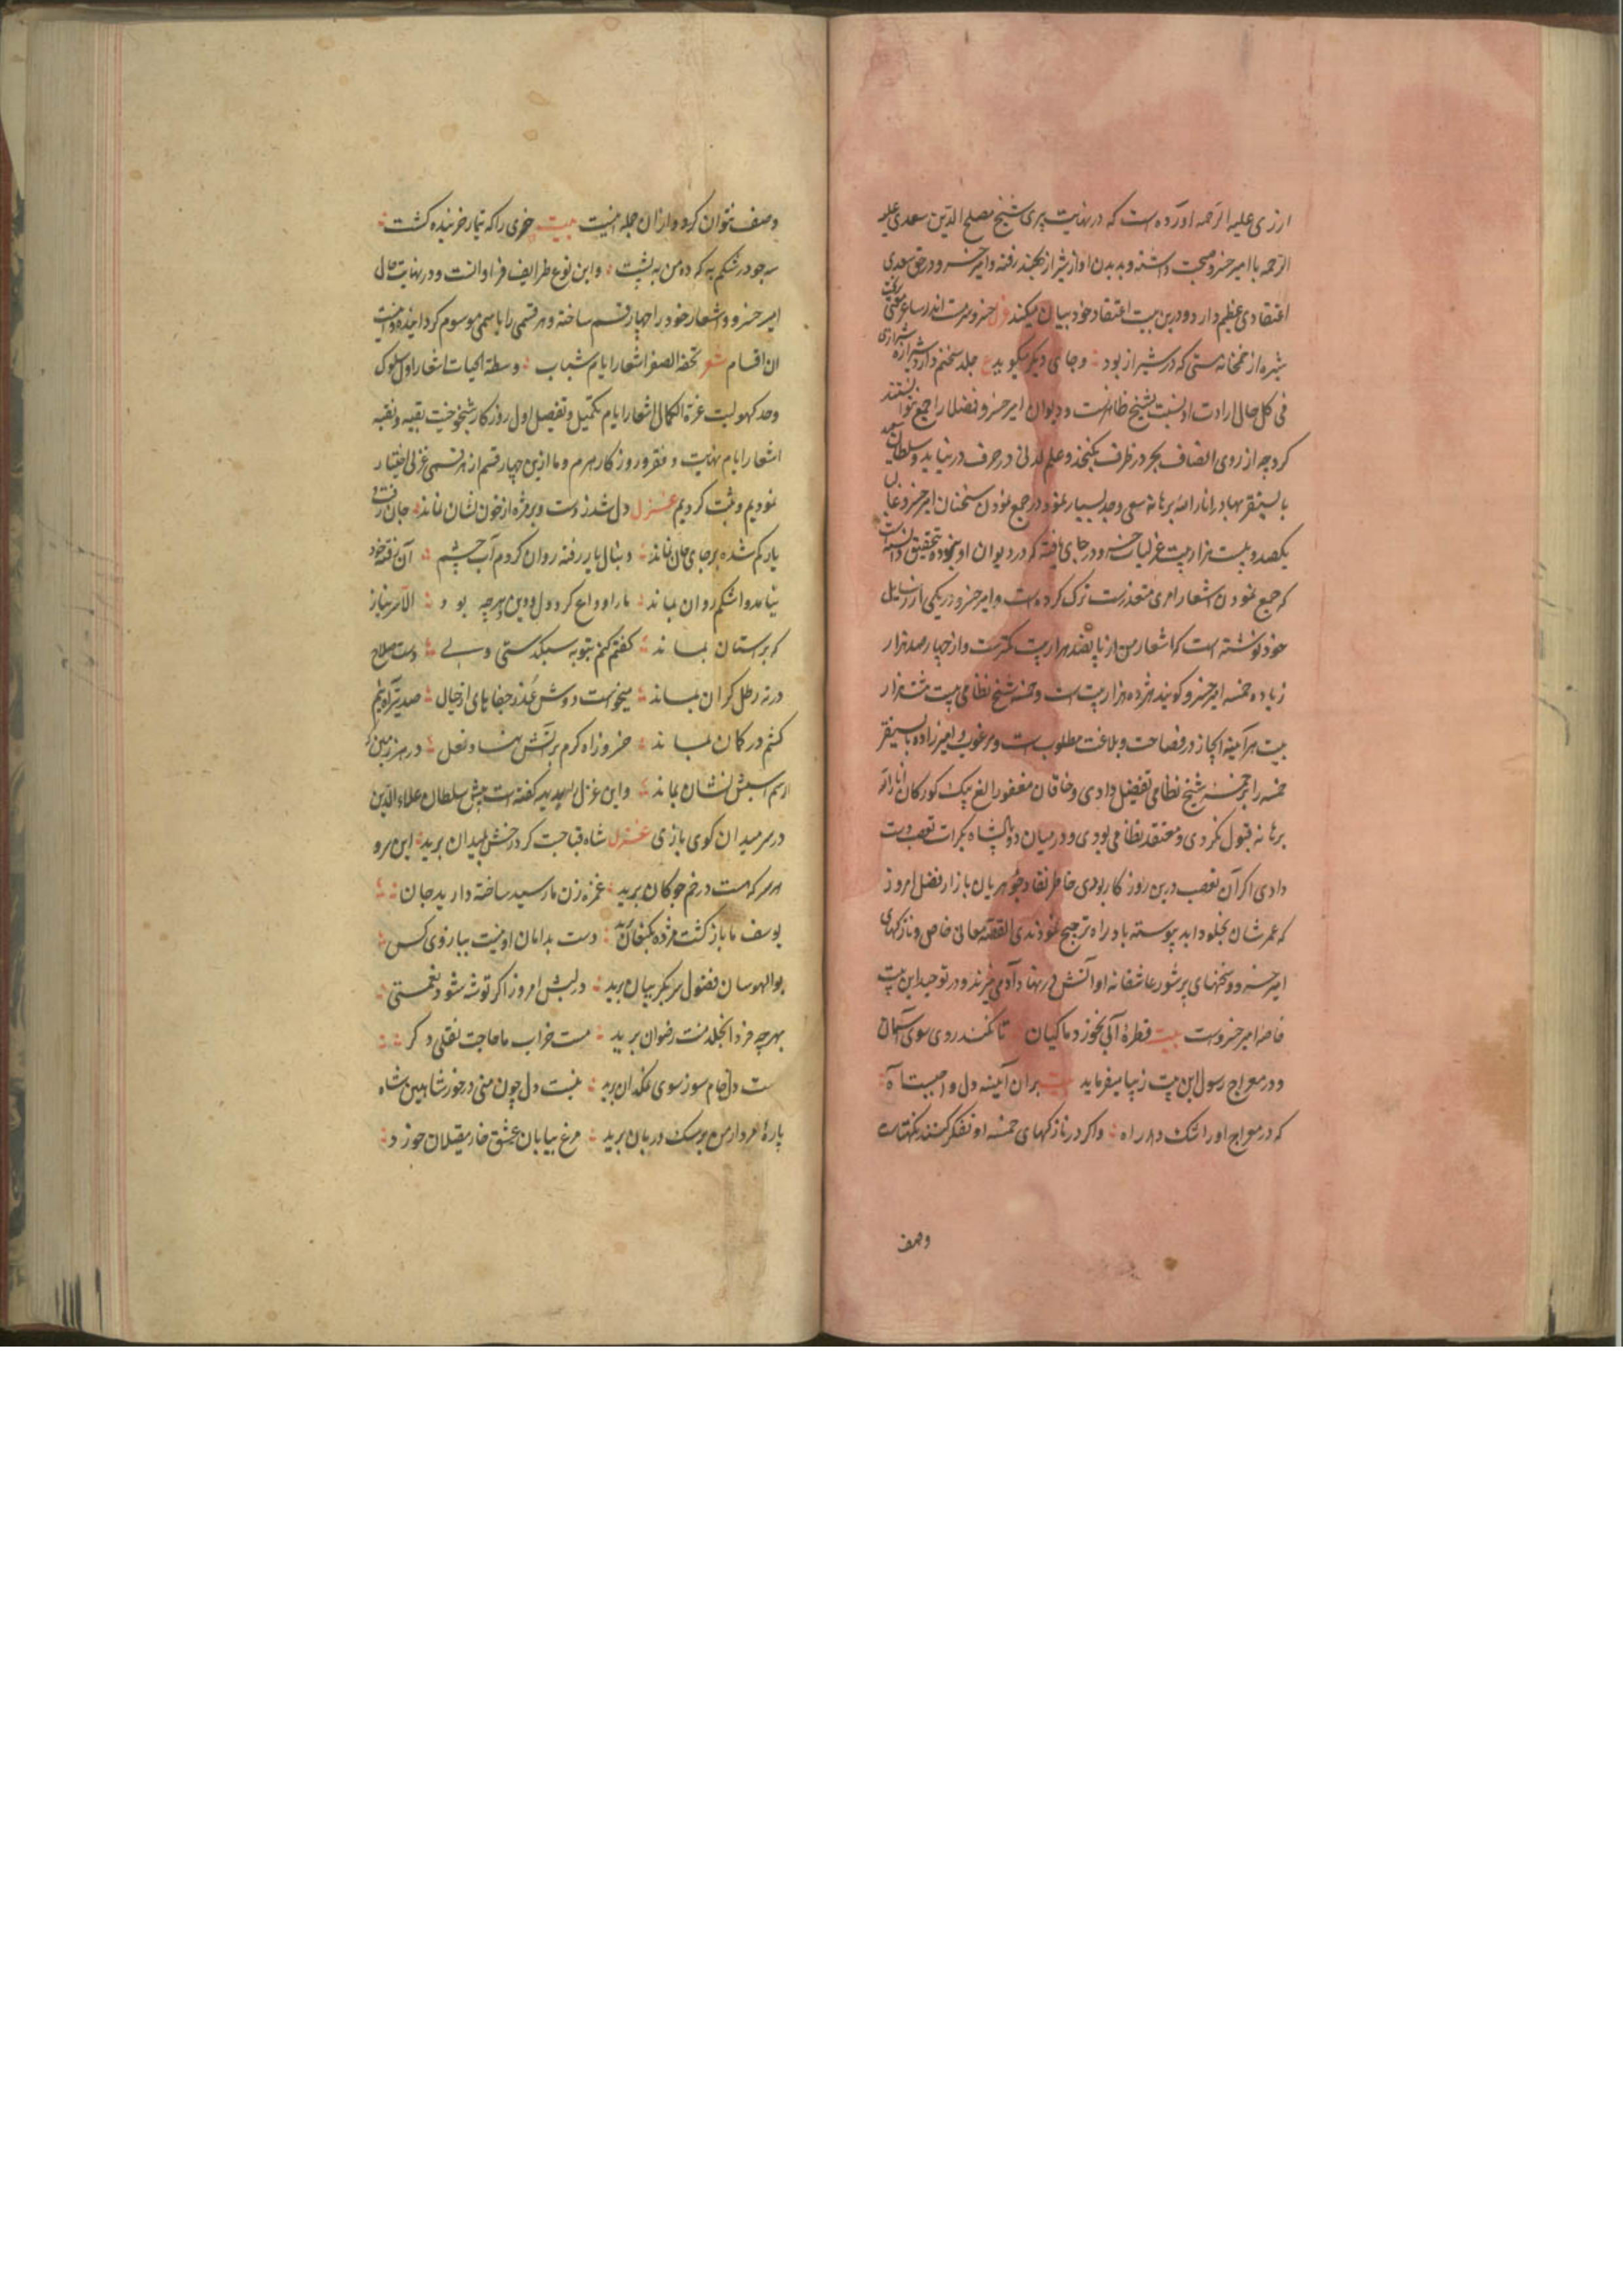 ارزی علیه الرحمه آورده است که در نهایت پیری شیخ مصلح الدین سعدی علیه
الرحمه با امیر خسرو صحبت داشته و بدیدن او از شیراز بهند رفته و امیر خسرو در حق سعدی
اعتقادی عظیم دارد و درین بیت اعتقاد خود بیان میکند خسرو سرمست اندر ساغر معنی بریخت
شیره از خمخانه مستی که در شیراز بود و جای دیگر میگوید ع جلد سخنم دارد شیرازه شیرازی
فی کل حال ارادت او نسبت بشیخ ظاهرست و دیوان امیر خسرو فضلا را جمع نتوانستند
کرد چه از روی انصاف بحر در ظرف نگنجد و علم لدنی در حرف درنیاید و سلطان سعید
بایسنقر بهادر انار الله برهانه سعی و جد بسیار نمود در جمع نمودن سخنان امیر خسرو غالبا
یکصد و بیست هزار بیت غزلیات خسرو در جای یافته که در دیوان او نبوده تحقیق دانست
که جمع نمودن اشعار امری متعذرست ترک کرده است و امیر خسرو در یکی از رسایل
خود نوشته است که اشعار من از پانصد هزار بیت کمترست و از چهار صد هزار
زیاده خمسه امیر خسرو گویند هژده هزار بیت است و خمسه شیخ نظامی بیست هشت هزار
بیت هرآینه ایجاز در فصاحت و بلاغت مطلوب است و مرغوب و امیرزاده بایسنقر
خمسه را بر خمسه شیخ نظامی تفضیل دادی و خاقان مغفور الغ بیک کورکان انار الله
برهانه قبول نکردی و معتقد نظامی بودی و در میان دو پادشاه بکرات تعصب دست
دادی اگر آن تعصب درین روزگار بودی خاطر نقاد جوهریان بازار فضل امروز
که عمرشان بخلود ابد پیوسته باد راه ترجیح نمودندی القصه معانی خاص و نازکهای
امیر خسرو و سخنهای پرشور عاشقانه او آتش در نهاد آدمی میزند و در توحید این بیت
خاصه امیر خسروست بیت قطره آبی نخورد ماکیان تا نکند روی سوی آسمان
و در معراج رسول این بیت زیبا میفرماید بیت بران آیینه دل واجبست آه
که در معراج او را شک در راه و اگر در نازکهای خمسه او تفکر کنند نکتهاست
وصف
وصف نتوان کرد و از ان جمله اینست بیت خری را که تیمار خربنده گشت
سه جو در شکم به که ده من به پشت و این نوع طرایف فراوانست و در نهایت حال
امیر خسرو اشعار خود را چهار قسم ساخته و هر قسمی را باسمی موسوم گردانیده و اینست
ان اقسام شعر تحفة الصغر اشعار ایام شباب وسطة الحیات اشعار اول سلوک
و حد کهولیت غرة الکمال اشعار ایام تکمیل و تفصیل اول روزگار شیخوخیت بقیه نقیه
اشعار ایام نهایت و فقر و روزگار هرم و ما ازین چهار قسم از هر قسمی غزلی اختیار
نمودیم و ثبت کردیم غزل دل شد ز دست و بر مژه از خون نشان نماند جان رفت و
یار گم شده بر جای جان نماند دنبال یار رفته روان کردم آب چشم آن رفته خود
نیامد و اشکم روان بماند ما را وداع کرد دل و دین و هرچه بود الا سر نیاز
که بر استان بماند گفتم کنم بتوبه سبکدستی ولی دست صلاح
در ته رطل گران بماند میخواست دوش عذر جفاهای از خیال صد تیر آه نیم
کشم در کمان بماند خسرو ز آه گرم بر آتش نهاد نعل در هر زمین که
از سم اسبش نشان بماند و این غزل بدیهه گفته است پیش سلطان علاء الدین
در سر میدان گوی بازی غزل شاه قباچست کرد رخش بمیدان برید این سر و
هر سر که هست در خم چوگان برید غمزه زن ما رسید ساخته دارید جان
یوسف ما باز گشت مژده بکنعان برید دست بدامان او نیست ببازوی کس
بوالهوسان فضول سر بگریبان برید در لبش امروز اگر توشه شود نعمتی
بهر چه فردا بخلد منت رضوان برید مست خراب ما حاجت نقلی دگر
هست دل خام سوز سوی نمکدان برید نیست دل چون منی در خور شاهین شاه
پاره مردار من بر سگ دربان برید مرغ بیابان عشق خار مغیلان خورد